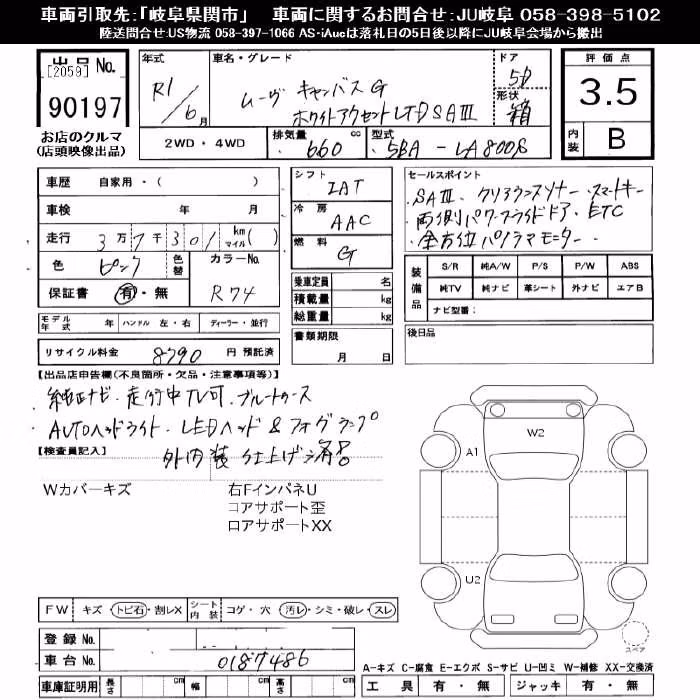 車両引取先:「岐阜県関市」 車両に関するお問合せ:JU岐阜 058-398-5102
陸送問合せ:US物流 058-397-1066 AS-iAucは落札日の5日後以降にJU岐阜会場から搬出
出品 No.
[2059]
90197
お店のクルマ
(店頭映像出品)
年式 R1/6月
車名・グレード
ムーヴ キャンバス G
ホワイトアクセントLTD SAⅢ
ドア 5D
形状 箱
評価点
3.5
内装 B
2WD・4WD
排気量 660 cc
型式 5BA-LA800S
車歴 自家用・( )
車検 年 月
走行 3万7千301 km マイル( )
色 ピンク 色替 カラーNo.
保証書 有・無 R74
シフト IAT
冷房 AAC
燃料 G
乗車定員 名
積載量 kg
総重量 kg
セールスポイント
・SAⅢ、クリアランスソナー・スマートキー
・両側パワースライドドア、ETC
・全方位パノラマモニター・
装備品
S/R 純A/W P/S P/W ABS
純TV 純ナビ 革シート 外ナビ エアB
ナビ型番:
モデル年式 年 ハンドル 左・右 ディーラー・並行
リサイクル料金 8790 円 預託済
書類期限
月 日
後日品
【出品店申告欄(不良箇所・欠品・注意事項等)】
・純正ナビ・走行中TV可、ブルートゥース
・AUTOヘッドライト・LEDヘッド&フォグランプ
【検査員記入】
外内装仕上げ済
Wカバーキズ
右FインパネU
コアサポート歪
ロアサポートXX
W2
A1
U2
スペア
FW キズ・トビ石・割レX シート内装 コゲ・穴 汚レ・シミ・破レ・スレ
登録No.
車台No. 0187486
車庫証明用 長さ cm 幅 cm 高さ cm
A-キズ C-腐食 E-エクボ S-サビ U-凹ミ W-補修 XX-交換済
工具 有・無 ジャッキ 有・無